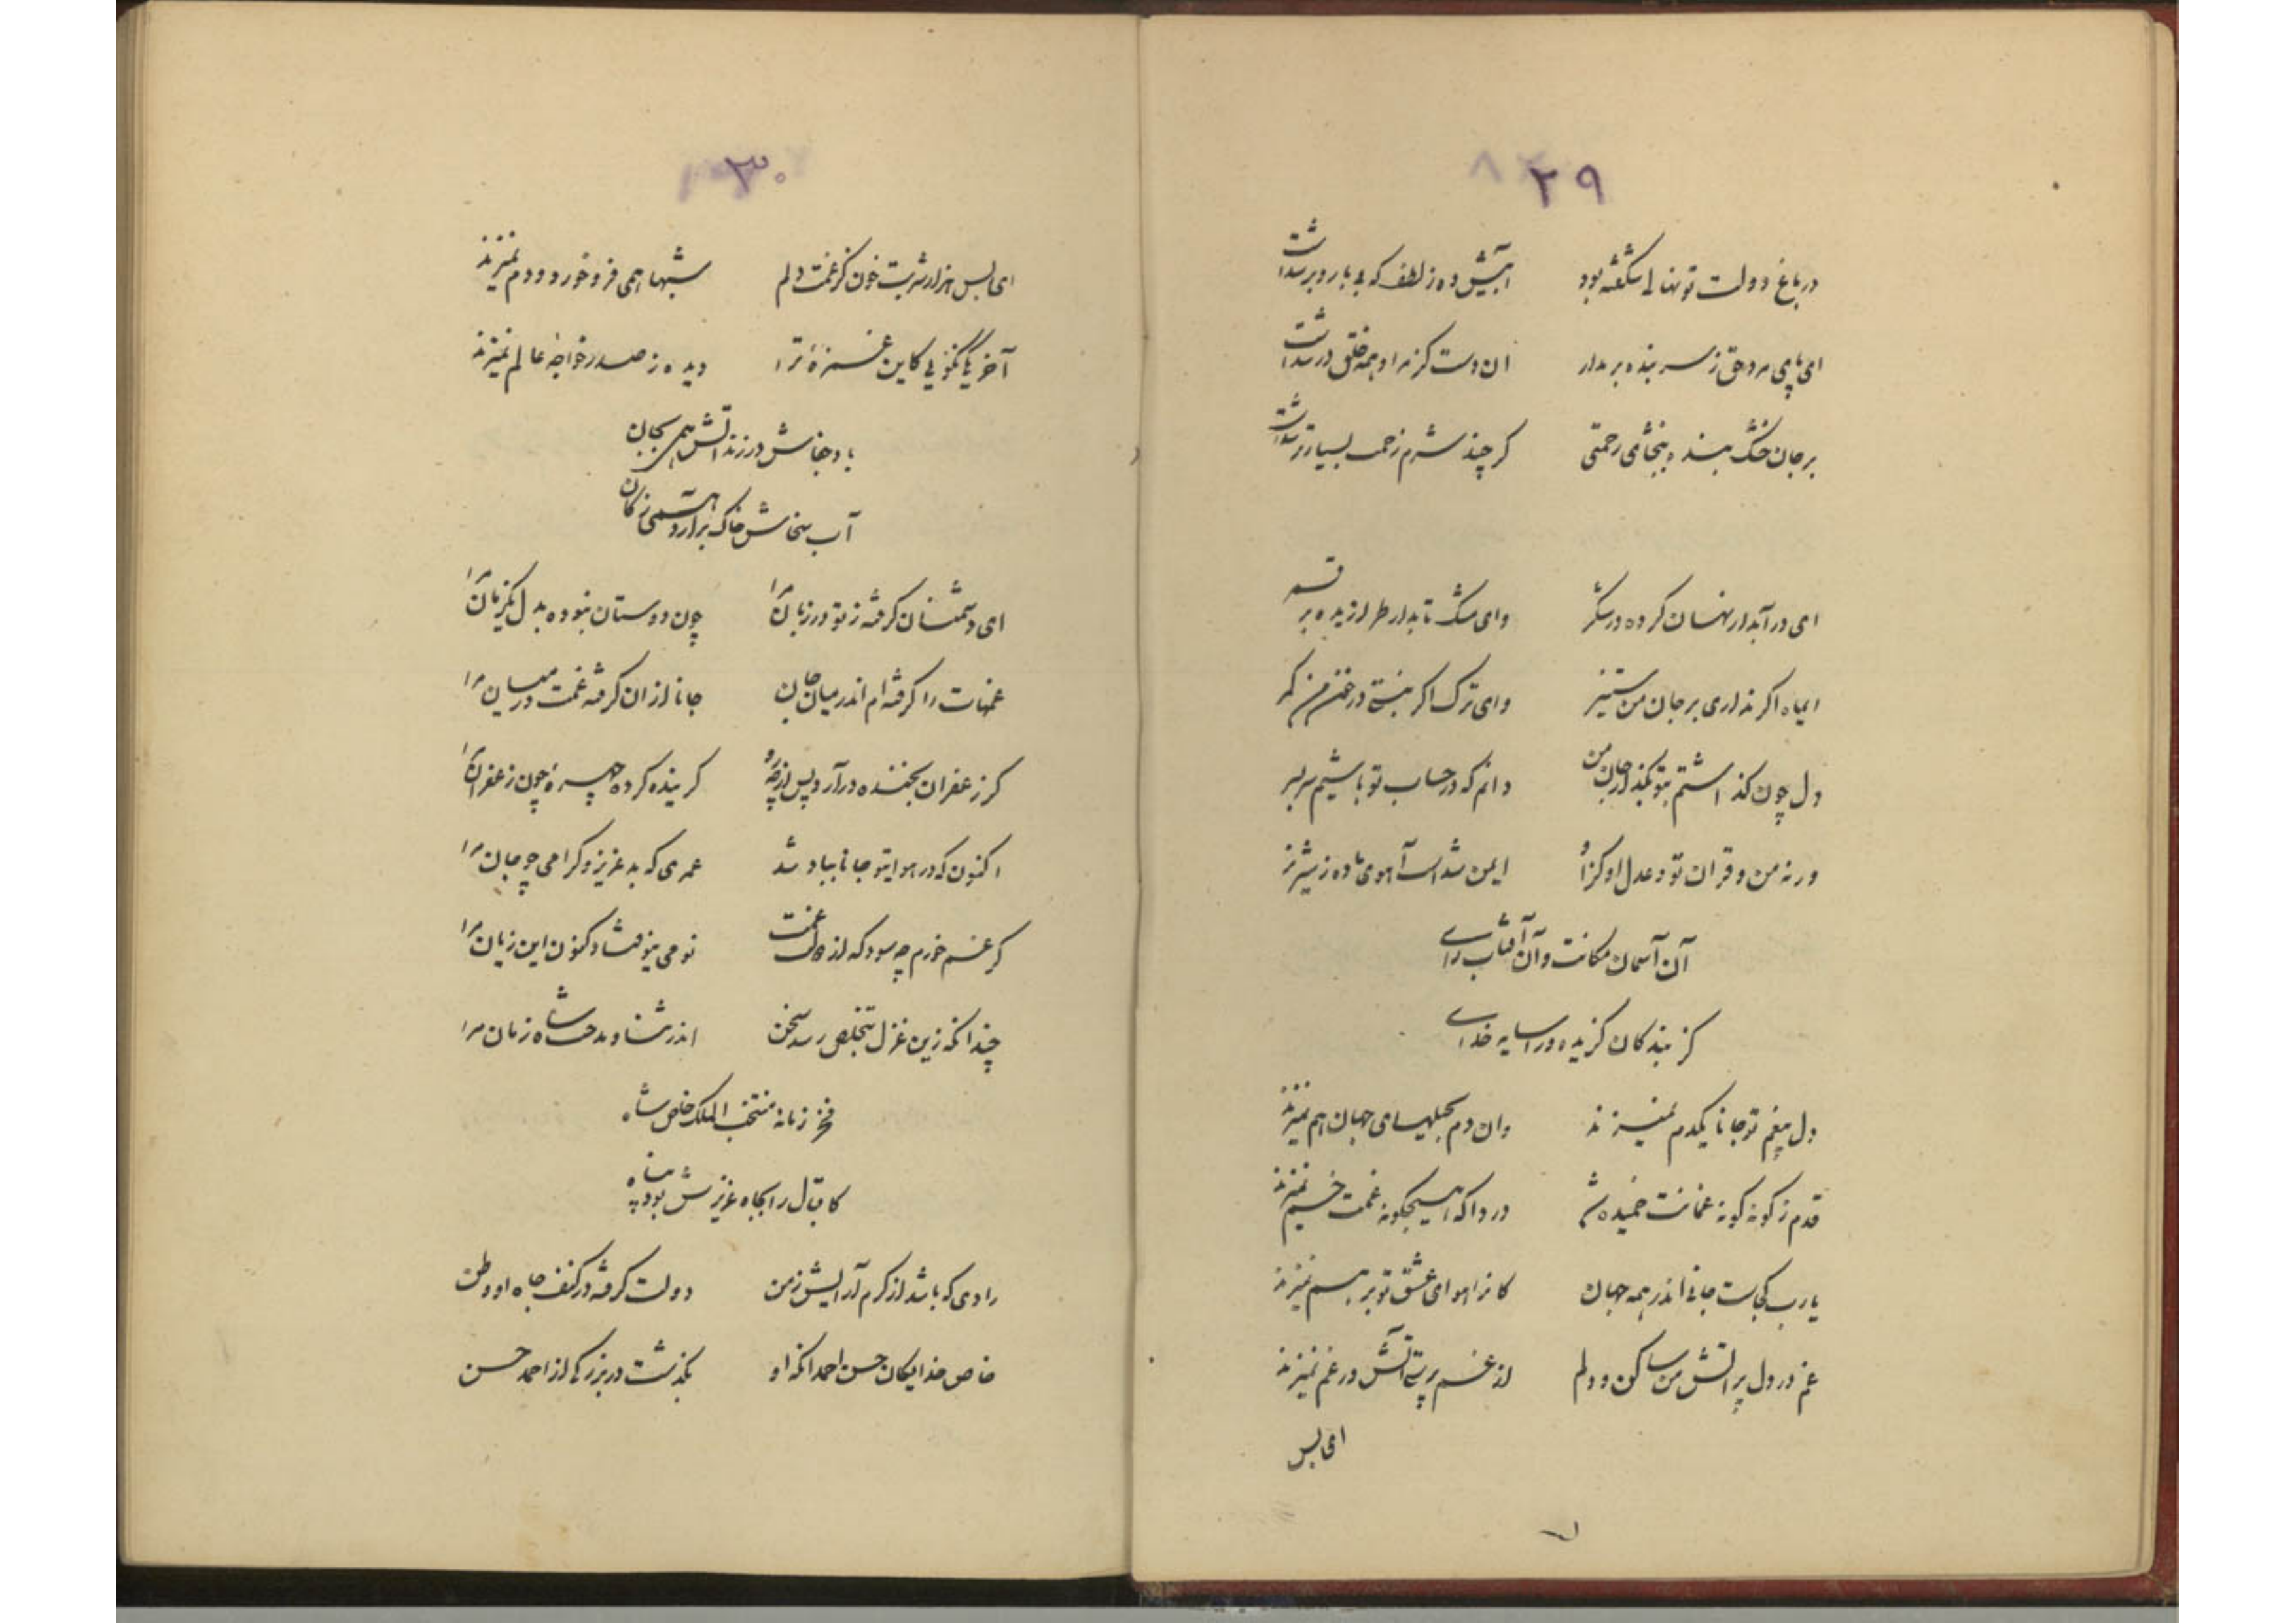 ۲۹
در باغ دولت تو نهالی شکفته بود آبیش ده ز لطف که بی بار و بر شدست
ای پای مرد حق ز سر بنده بر مدار ان دست کز مراد همه خلق در شدست
بر جان خشک بنده ببخشای رحمتی کر چند شرم زحمت بسیار تر شدست
ای در آبدار نهان کرده در شکر وای مشک تابدار طرازیده بر قمر
ایماه اکر نداری بر جان من ستیز وای ترک اکر نبستی در خون من کمر
دل چون کذاشتم بتو بگذر ز جان من دانم که در حساب تو باشیم سر بسر
ورنه من و قران تو و عدل او کزو ایمن شدست آهوی ماده ز شیر نر
آن آسمان مکانت و آن آفتاب رای
کز بندکان کزیده ورا سایه خدای
دل بیغم تو جانا یکدم نمیزند وان دم بحیلهای جهان هم نمیزند
قدم ز کونه کونه غمانت خمیده شد دردا که هیچکونه غمت خم نمیزند
یارب کجاست جانی اندر همه جهان کانرا هوای عشق تو بر هم نمیزند
غم در دل پر آتش من ساکن و دلم از غم پرستی آتش در غم نمیزند
ای بس
۳۰
ای بس هزار شربت خون کز غمت دلم شبها همی فرو خورد و دم نمیزند
آخر یکی نگوئی کاین غمزهٔ ترا دیده ز صدر خواجه عالم نمیزند
باد جفاش در زند آتش همی بجان
آب سخاش خاک برآرد همی ز کان
ای دشمنان کرفته ز تو در زبان مرا چون دوستان نبوده بدل یکزمان مرا
غمهات را کرفته ام اندر میان جان جانا از ان کرفته غمت در میان مرا
کر زعفران بخنده درآرد پس از چه رو کرینده کرده چهره چون زعفران مرا
اکنون که در هوایتو جانا بباد شد عمری که بد عزیز و کرامی چو جان مرا
کر غم خورم چه سود که از غمت نومی بیوفتاد کنون این زیان مرا
چندانکه زین غزل بتخلص رسد سخن اندر ثنا و مدحت شاه زمان مرا
فخر زمانه منتخب الملک خاص شاه
کاقبال را بجاه عزیزش بود پناه
رادی که باشد از کرم آرایش زمن دولت کرفته در کنف جاه او وطن
خاص خدایکان حسن احمد انکه او بگذشت در بزرکی از احمد حسن